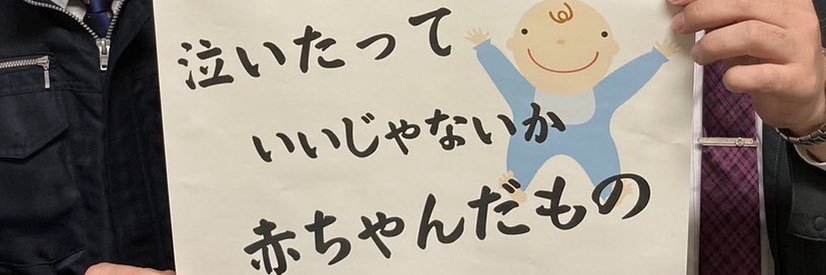 泣いたって
いいじゃないか
赤ちゃんだもの